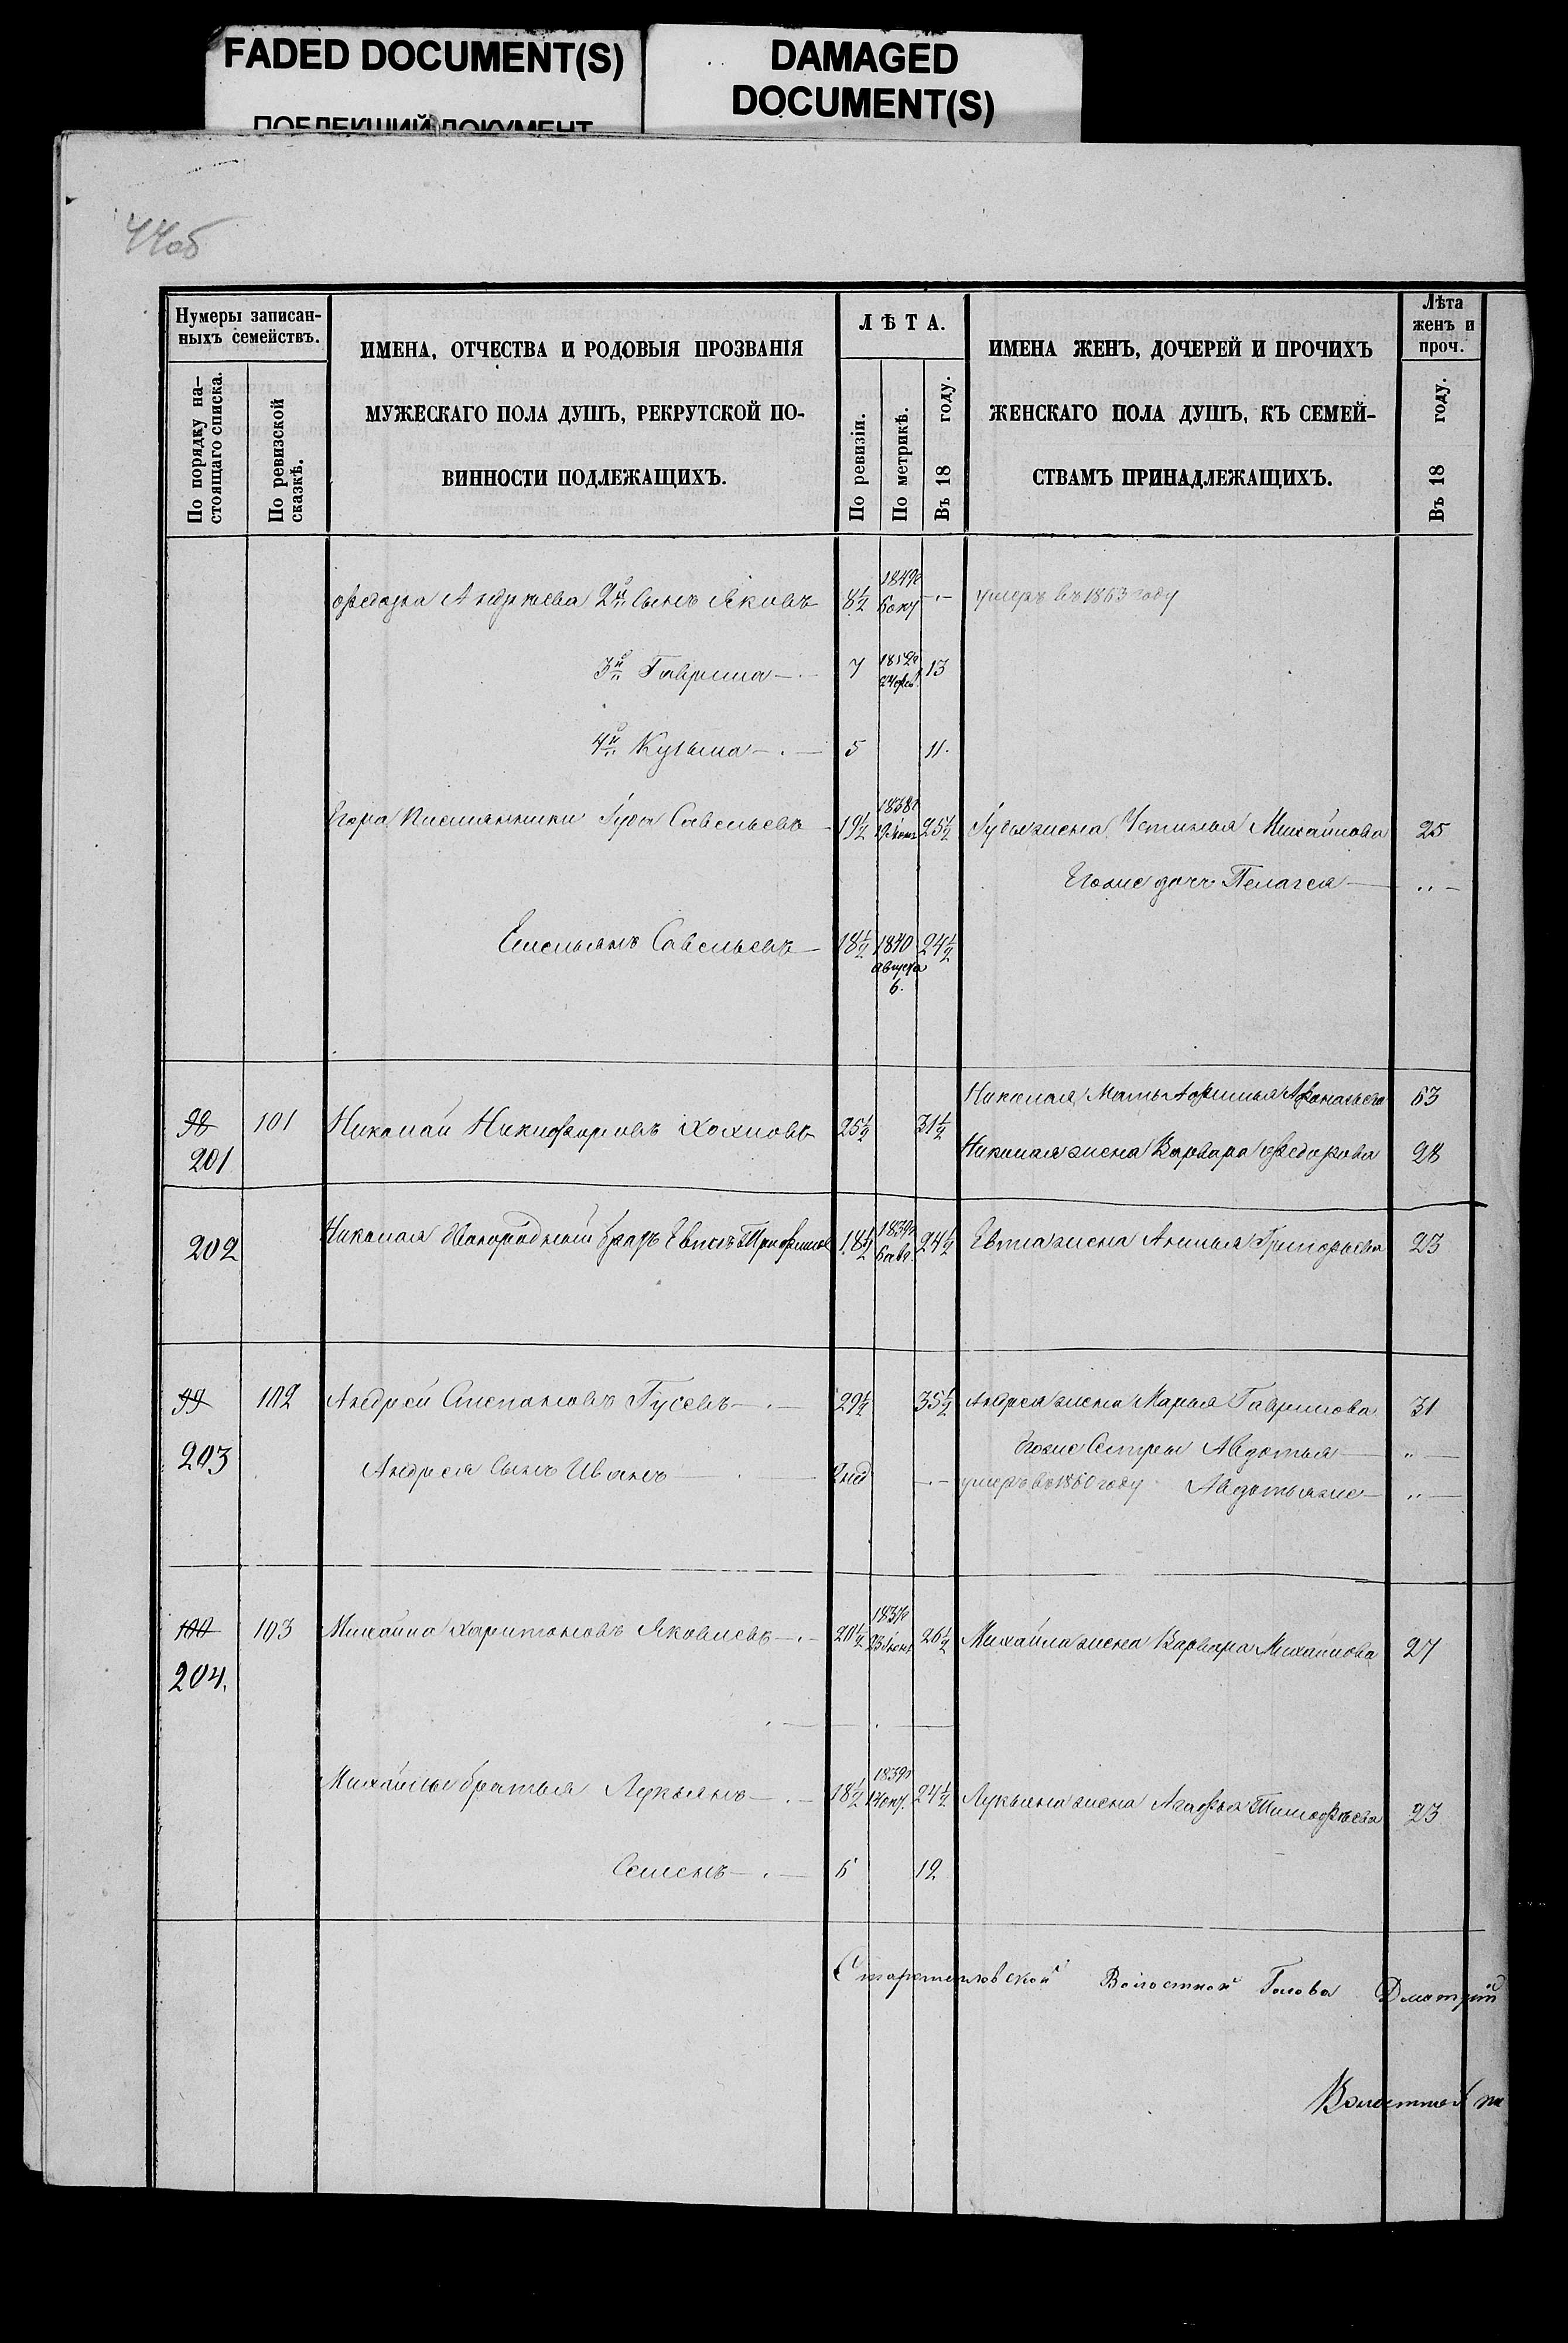 FADED DOCUMENT(S)
ПОБЛЕКШИЙ ДОКУМЕНТ
DAMAGED
DOCUMENT(S)
44об
Нумеры записан-
ныхъ семействъ.
По порядку на-
стоящаго списка.
По ревизской
сказкѣ.
ИМЕНА, ОТЧЕСТВА И РОДОВЫЯ ПРОЗВАНІЯ
МУЖЕСКАГО ПОЛА ДУШЪ, РЕКРУТСКОЙ ПО-
ВИННОСТИ ПОДЛЕЖАЩИХЪ.
ЛѢТА.
По ревизіи.
По метрикѣ.
Въ 18 году.
ИМЕНА ЖЕНЪ, ДОЧЕРЕЙ И ПРОЧИХЪ
ЖЕНСКАГО ПОЛА ДУШЪ, КЪ СЕМЕЙ-
СТВАМЪ ПРИНАДЛЕЖАЩИХЪ.
Лѣта
женъ и
проч.
Въ 18 году.
Федора Андреева 2й сынъ Яковъ 8½ 1849г 6 окт — умеръ въ 1863 году
3й Гаврила — 7 1852г 24 фев. 13
4й Кузьма — 5 11.
Егора Племянники Гурій Савельевъ 19½ 1838г 25½ Гурья жена Устинья Михайлова 25
Егоже дочь Пелагея — „ —
Емельянъ Савельевъ — 18½ 1840 августа 6. 24½
98 101 Николай Никифоровъ Хохловъ 25½ 31½ Николая Мать Афимья Афанасьева 63
201 Николая жена Варвара Федорова 28
202 Николая Двоюродный братъ Евтей Трофимовъ 18½ 1839г 24½ Евтея жена Анисья Григорьева 23
99 102 Андрей Степановъ Гусевъ — 29½ 35½ Андрея жена Марья Гаврилова 31
203 Егоже Сестры Авдотья — „ —
Андрея сынъ Иванъ — 2 нед — умеръ въ 1860 году Авдотья же — „ —
100 103 Михайло Харитоновъ Яковлевъ — 20½ 1837г 23 26½ Михайла жена Варвара Михайлова 27
204.
Михайлы братья Лукьянъ — 18½ 1839г 14 окт. 24½ Лукьяна жена Агафья Тимофеева 23
Семенъ — 6 12
Волостной Голова Дмитрий
Волостной пи